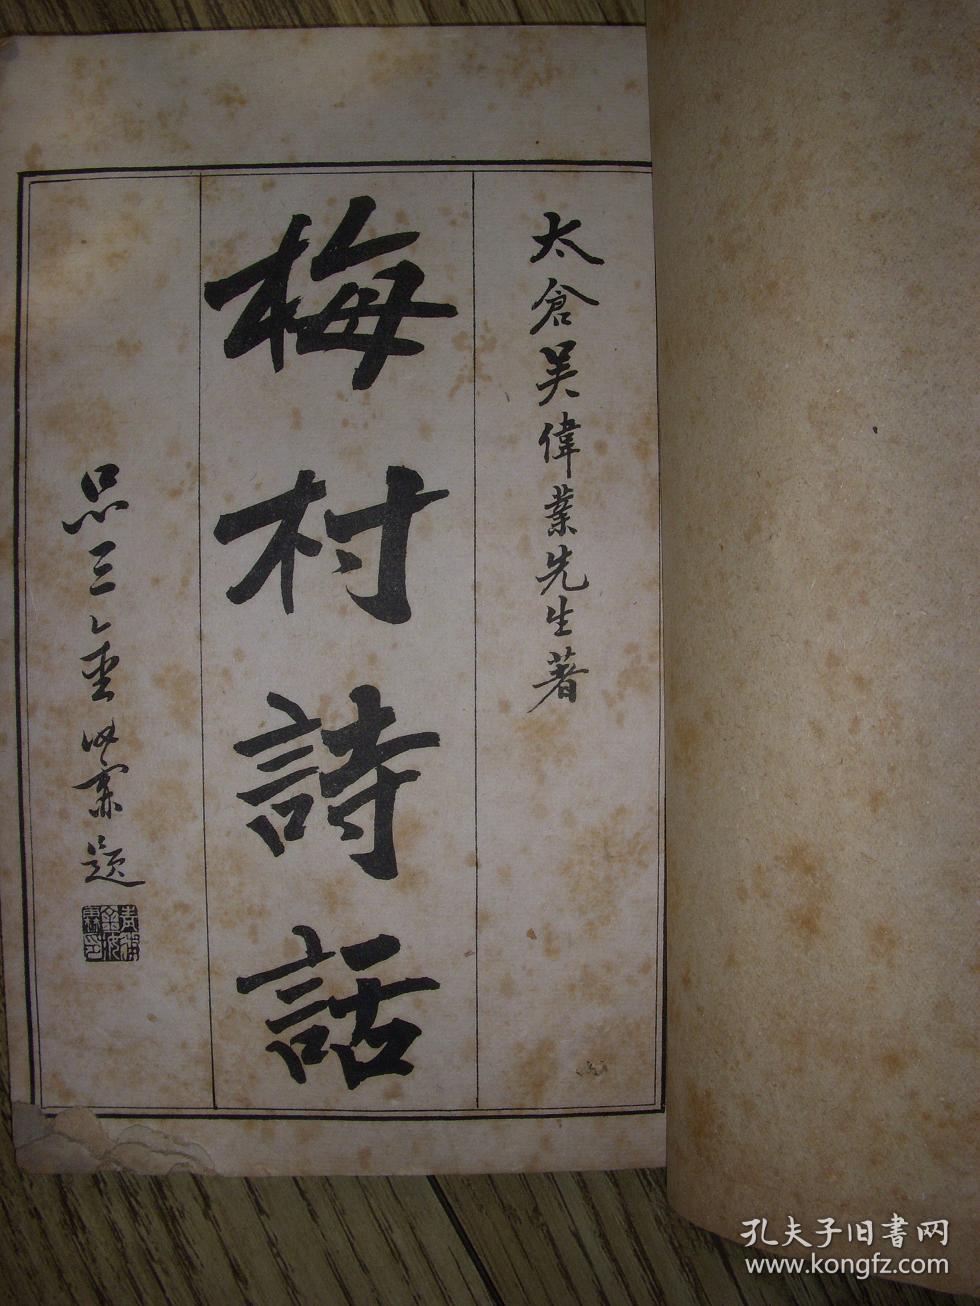 太倉吳偉業先生著
梅村詩話
品三金
題
孔夫子旧書网
www.kongfz.com